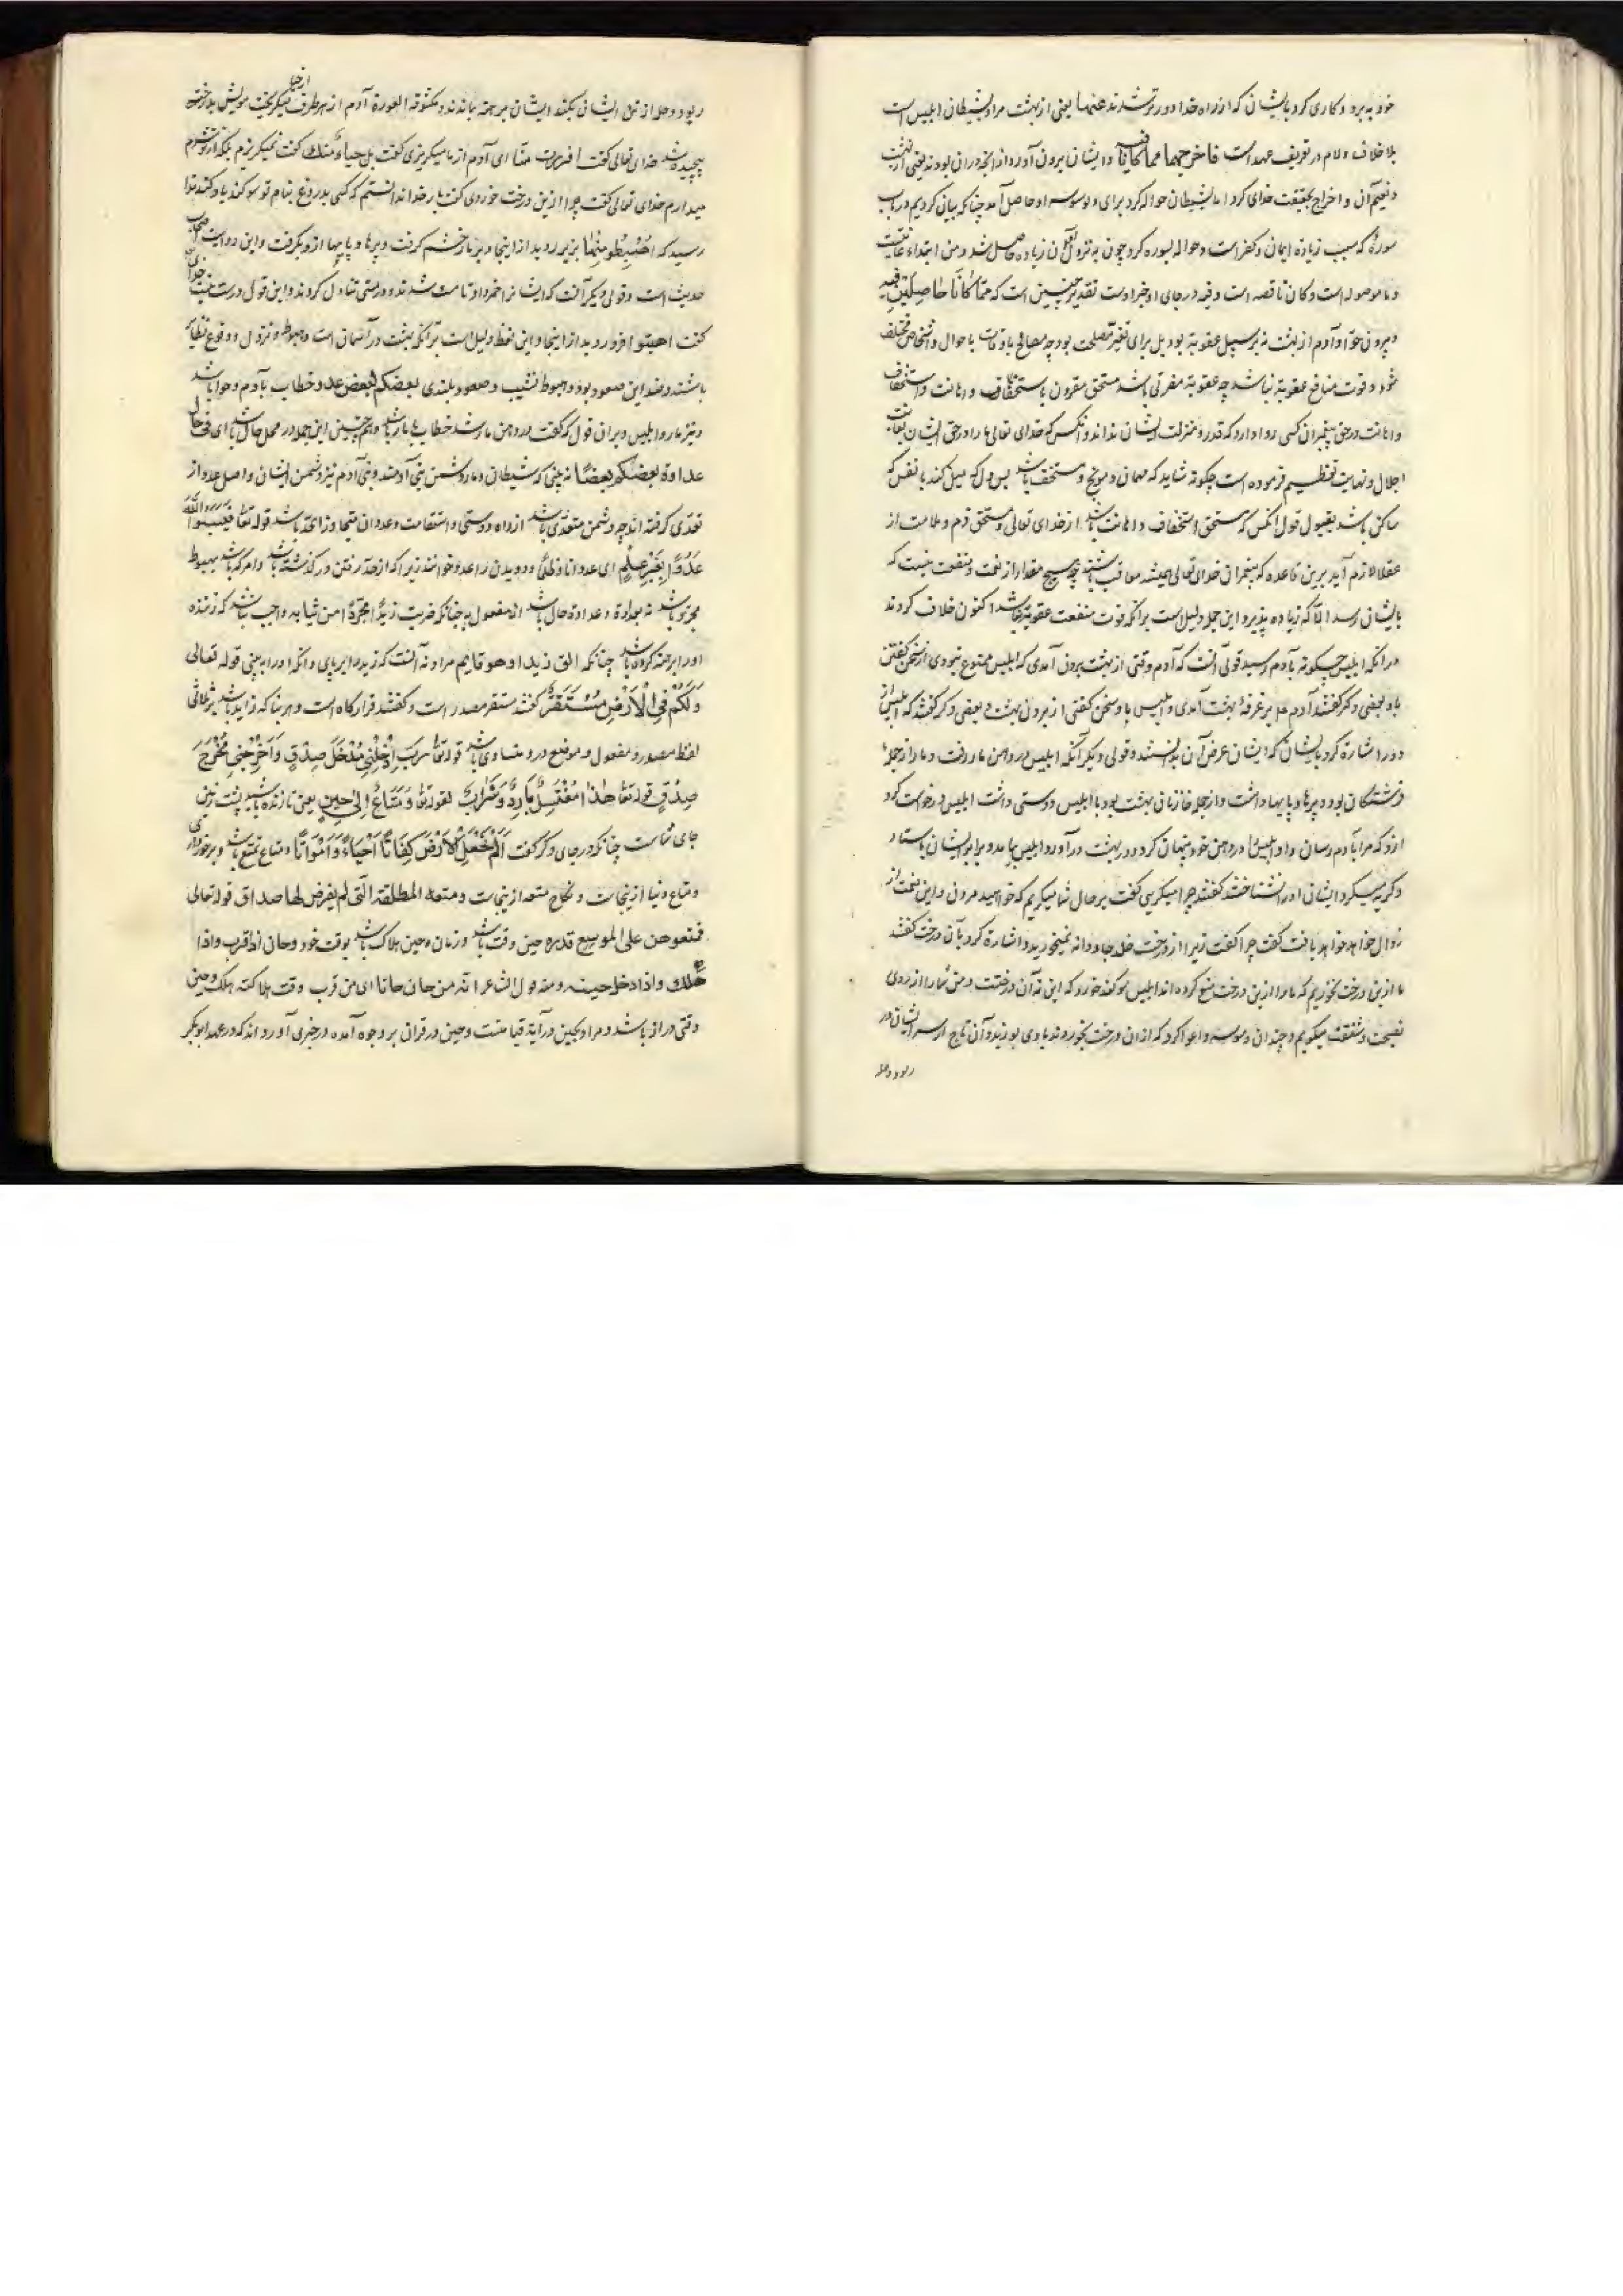 خود به برد و کاری کرد بایشان که از راه خدا دور شدند عنها یعنی از بهشت مراد بشیطان ابلیس است
بلا خلاف و لام در تعریف عهد است فاخرجهما مما کانا فیه و ایشان بیرون آورد از آنچه در آن بودند یعنی از بهشت
و نعیم آن و اخراج بحقیقت خدای کرد اما بشیطان حواله کرد برای وسوسه او حاصل آمد چنانکه بیان کردیم در باب
سوره که سبب زیاده ایمان و کفر است و حواله بسوره کرد چون به نزول آن زیاده حاصل شد و من ابتداء غایت
و ما موصوله است و کان ناقصه است و فیه در جای او خبر اوست تقدیر چنین است که مما کانا حاصلین فیه
و بیرون حوا و آدم از بهشت نه بر سبیل عقوبة بود بل برای تغیر مصلحت بود چه مصالح باوقات با حوال و اشخاص مختلف
شود و فوت منافع عقوبة نباشد چه عقوبة مضرتی باشد مستحق مقرون باستخفاف و اهانت و استخفاف
و اهانت در حق پیغمبران کسی روا دارد که قدر و منزلت ایشان نداند و آنکس که خدای تعالی ما را در حق ایشان بغایت
اجلال و نهایت تعظیم فرموده است چگونه شاید که مهمان و موبخ و مستخف باشد بس دل که میل کند یا نفس که
ساکن باشد بقبول قول آنکس که مستحق استخفاف و اهانت باشد از خدای تعالی و مستحق ذم و ملامت از
عقلا لازم آید برین قاعده که پیغمبران خدای تعالی همیشه معاقب باشند چه هیچ مقدار از نعمت و منفعت نیست که
بایشان رسد الا که زیاده پذیرد و این جمله دلیل است برانکه فوت منفعت عقوبة نباشد اکنون خلاف کردند
در انکه ابلیس چگونه بآدم رسید قولی آنست که آدم وقتی از بهشت بیرون آمدی که ابلیس ممنوع نبودی از سخن گفتن
با و بعضی دگر گفتند آدم بر غرفهٔ بهشت آمدی و ابلیس با و سخن گفتی از بیرون بهشت و بعضی دگر گفتند که ابلیس از
دور اشاره کرد بایشان که ایشان غرض آن بدانستند و قولی دیگر آنکه ابلیس در دهن مار رفت و مار از جمله
فرشتگان بود و پرها و پایها داشت و از جمله خازنان بهشت بود با ابلیس دوستی داشت ابلیس درخواست کرد
ازو که مرا بآدم رسان و او ابلیس را در دهن خود پنهان کرد و در بهشت در آورد ابلیس بیامد و برابر ایشان باستاد
و گریه میکرد ایشان او را نشناختند گفتند چرا میگریی گفت بر حال شما میگریم که خواهید مردن و این نعمت از
زوال خواهد خواهد یافت گفت چرا گفت زیرا از درخت خلد جاودانه نمیخورید و اشاره کرد بآن درخت گفتند
ما ازین درخت نخوریم که ما را ازین درخت منع کرده اند ابلیس سوکند خورد که این نه آن درختست و من شما را از روی
نصیحت و شفقت میکویم و چندان وسوسه و اغوا کرد که از ان درخت بخوردند باوی بوزید و آن تاج از سر ایشان در
ربود و حله
ربود و حله از تن ایشان بکند ایشان برهنه بماندند و مکشوف العورة آدم از هر طرف میگریخت مویش بدرختی
از حیا
پیچیده شد خدای تعالی گفت افرارت منّا ای آدم از ما میگریزی گفت بل حیاءً منک گفت نمیگریزم بلکه از تو شرم
میدارم خدای تعالی گفت چرا ازین درخت خوردی گفت بار خدا ندانستم که کسی بدروغ بنام تو سوکند یاد کند ندا
رسید که اهبطو منها بزیر روید از اینجا و بر مار خشم گرفت و پرها و پایها ازو بگرفت و این روایت اصحاب
حدیث است و قولی دیگر آنست که ایشان را خمر داد تا مست شدند و در مستی تناول کردند و این قول درست نیست خدای
گفت اهبتو افرود روید از اینجا و این لفظ دلیل است برانکه بهشت در آسمان است و هبوط و نزول و وقوع نظایر
باشند و ضد این صعود بود و هبوط نشیب و صعود بلندی بعضکم لبعض عدو خطاب بآدم و حوا باشد
و نیز مار و ابلیس و بران قول که گفت در دهن مار شد خطاب با مار باشد و هم چنین این جمله در محل حال باشد ای فی حال
عداوة بعضکم بعضا نه بینی که شیطان و مار دشمن بنی آدمند و بنی آدم نیز دشمن ایشان و اصل عدو از
تعدی گرفته اند چه دشمن متعدی باشد از راه دوستی و استقامت و عدوان متجاوز از حد باشد قوله تعا فیسبوا الله
عَدْوًا بِغَیْرِ عِلْمٍ ای عدوانا و ظلما و دویدن را عدو خوانند زیرا که از حد رفتن در گذشته باشد و امر که باشد بهبوط
مجرد باشد نه بعداوة و عداوة حال باشد از مفعول به چنانکه ضربت زیداً مجرّداً من ثیابه واجب نباشد که زننده
او را برهنه کرده باشد چنانکه الق زیدا و هو قایم مراد نه آنست که زید را بر پای و انکه او را ببینی قوله تعالی
وَلَکُمْ فِی الْاَرْضِ مُسْتَقَرٌّ گفتند مستقر مصدر است و گفتند قرارگاه است و هر بنا که زاید باشد بر ثلاثی
لفظ مصدر و مفعول و موضع در و متساوی باشد قوله تعا رَبِّ اَدْخِلْنِی مُدْخَلَ صِدْقٍ وَاَخْرِجْنِی مُخْرَجَ
صِدْقٍ قوله تعا هٰذَا مُغْتَسَلٌ بَارِدٌ وَشَرَابٌ لقوله تعا وَمَتَاعٌ اِلٰی حِینٍ یعنی تا زنده باشید پشت زمین
جای شماست چنانکه در جای دگر گفت اَلَمْ نَجْعَلِ الْاَرْضَ کِفَاتًا اَحْیَاءً وَاَمْوَاتًا و متاع تمتع باشد و برخورداری
و متاع دنیا ازینجاست و نکاح متعه ازینجاست و متعه المطلقة الّتی لم یفرض لها صداق قوله تعالی
فمتعوهن علی الموسع قدره حین وقت باشد و زمان و حین هلاک باشد بوقت خود و حان اذا قرب و اذا
هلک و اذا دخل حینه و منه قول الشاعر انه من حان حانا ای من قرب وقت هلاکته هلک و حین
وقتی دراز باشد و مراد بحین در آیة قیامتست و حین در قرآن بر وجوه آمده و در خبری آورد اند که در عهد ابوبکر